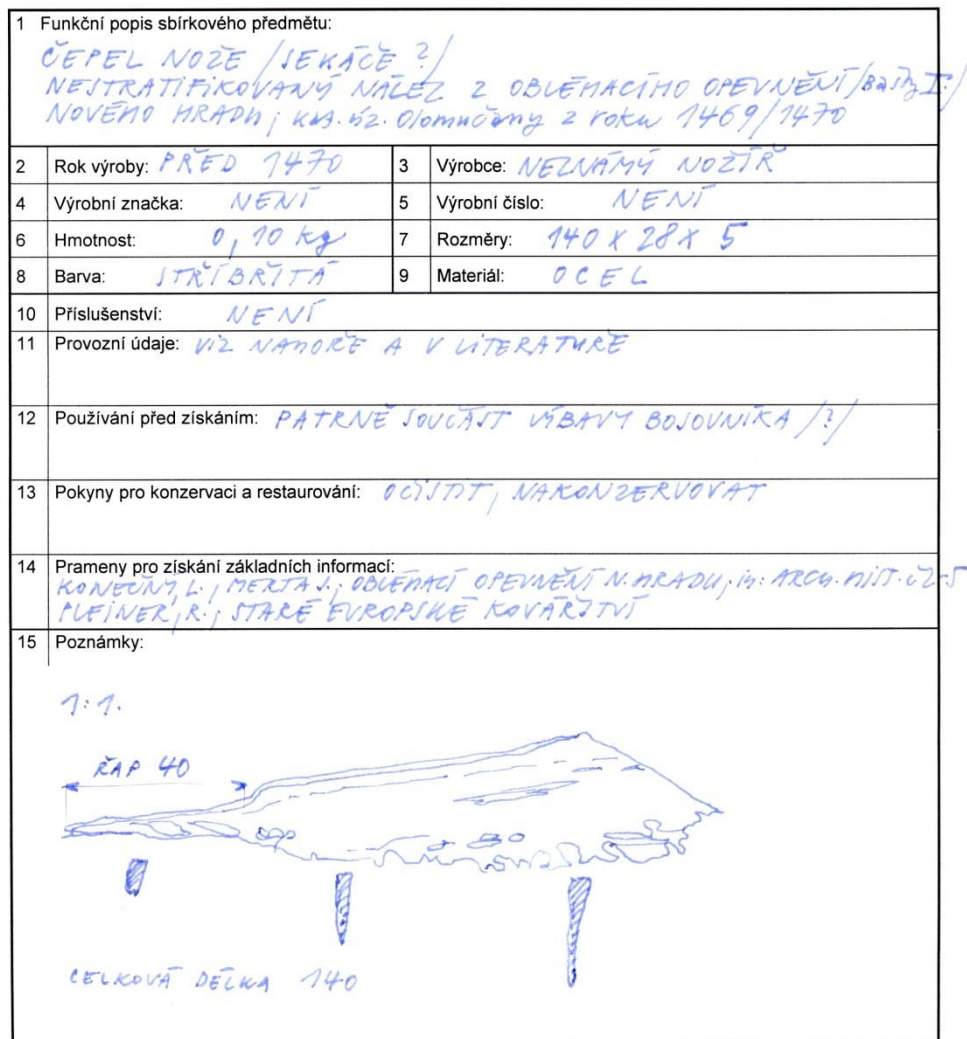 1 Funkční popis sbírkového předmětu:
ČEPEL NOŽE /SEKÁČE ?/
NESTRATIFIKOVANÝ NÁLEZ Z OBLÉHACÍHO OPEVNĚNÍ /Bašty I./
NOVÉHO HRADU; kat. úz. Olomučany z roku 1469/1470
2 Rok výroby: PŘED 1470 3 Výrobce: NEZNÁMÝ NOŽÍŘ
4 Výrobní značka: NENÍ 5 Výrobní číslo: NENÍ
6 Hmotnost: 0,10 kg 7 Rozměry: 140 X 28 X 5
8 Barva: STŘÍBŘITÁ 9 Materiál: OCEL
10 Příslušenství: NENÍ
11 Provozní údaje: VIZ NAHOŘE A V LITERATUŘE
12 Používání před získáním: PATRNĚ SOUČÁST VÝBAVY BOJOVNÍKA /?/
13 Pokyny pro konzervaci a restaurování: OČISTIT, NAKONZERVOVAT
14 Prameny pro získání základních informací:
KONEČNÝ, L., MERTA J.; OBLÉHACÍ OPEVNĚNÍ N. HRADU; in: ARCH. HIST. č. 5
PLEINER, R.; STARÉ EVROPSKÉ KOVÁŘSTVÍ
15 Poznámky:
1:1.
ŘAP 40
CELKOVÁ DÉLKA 140